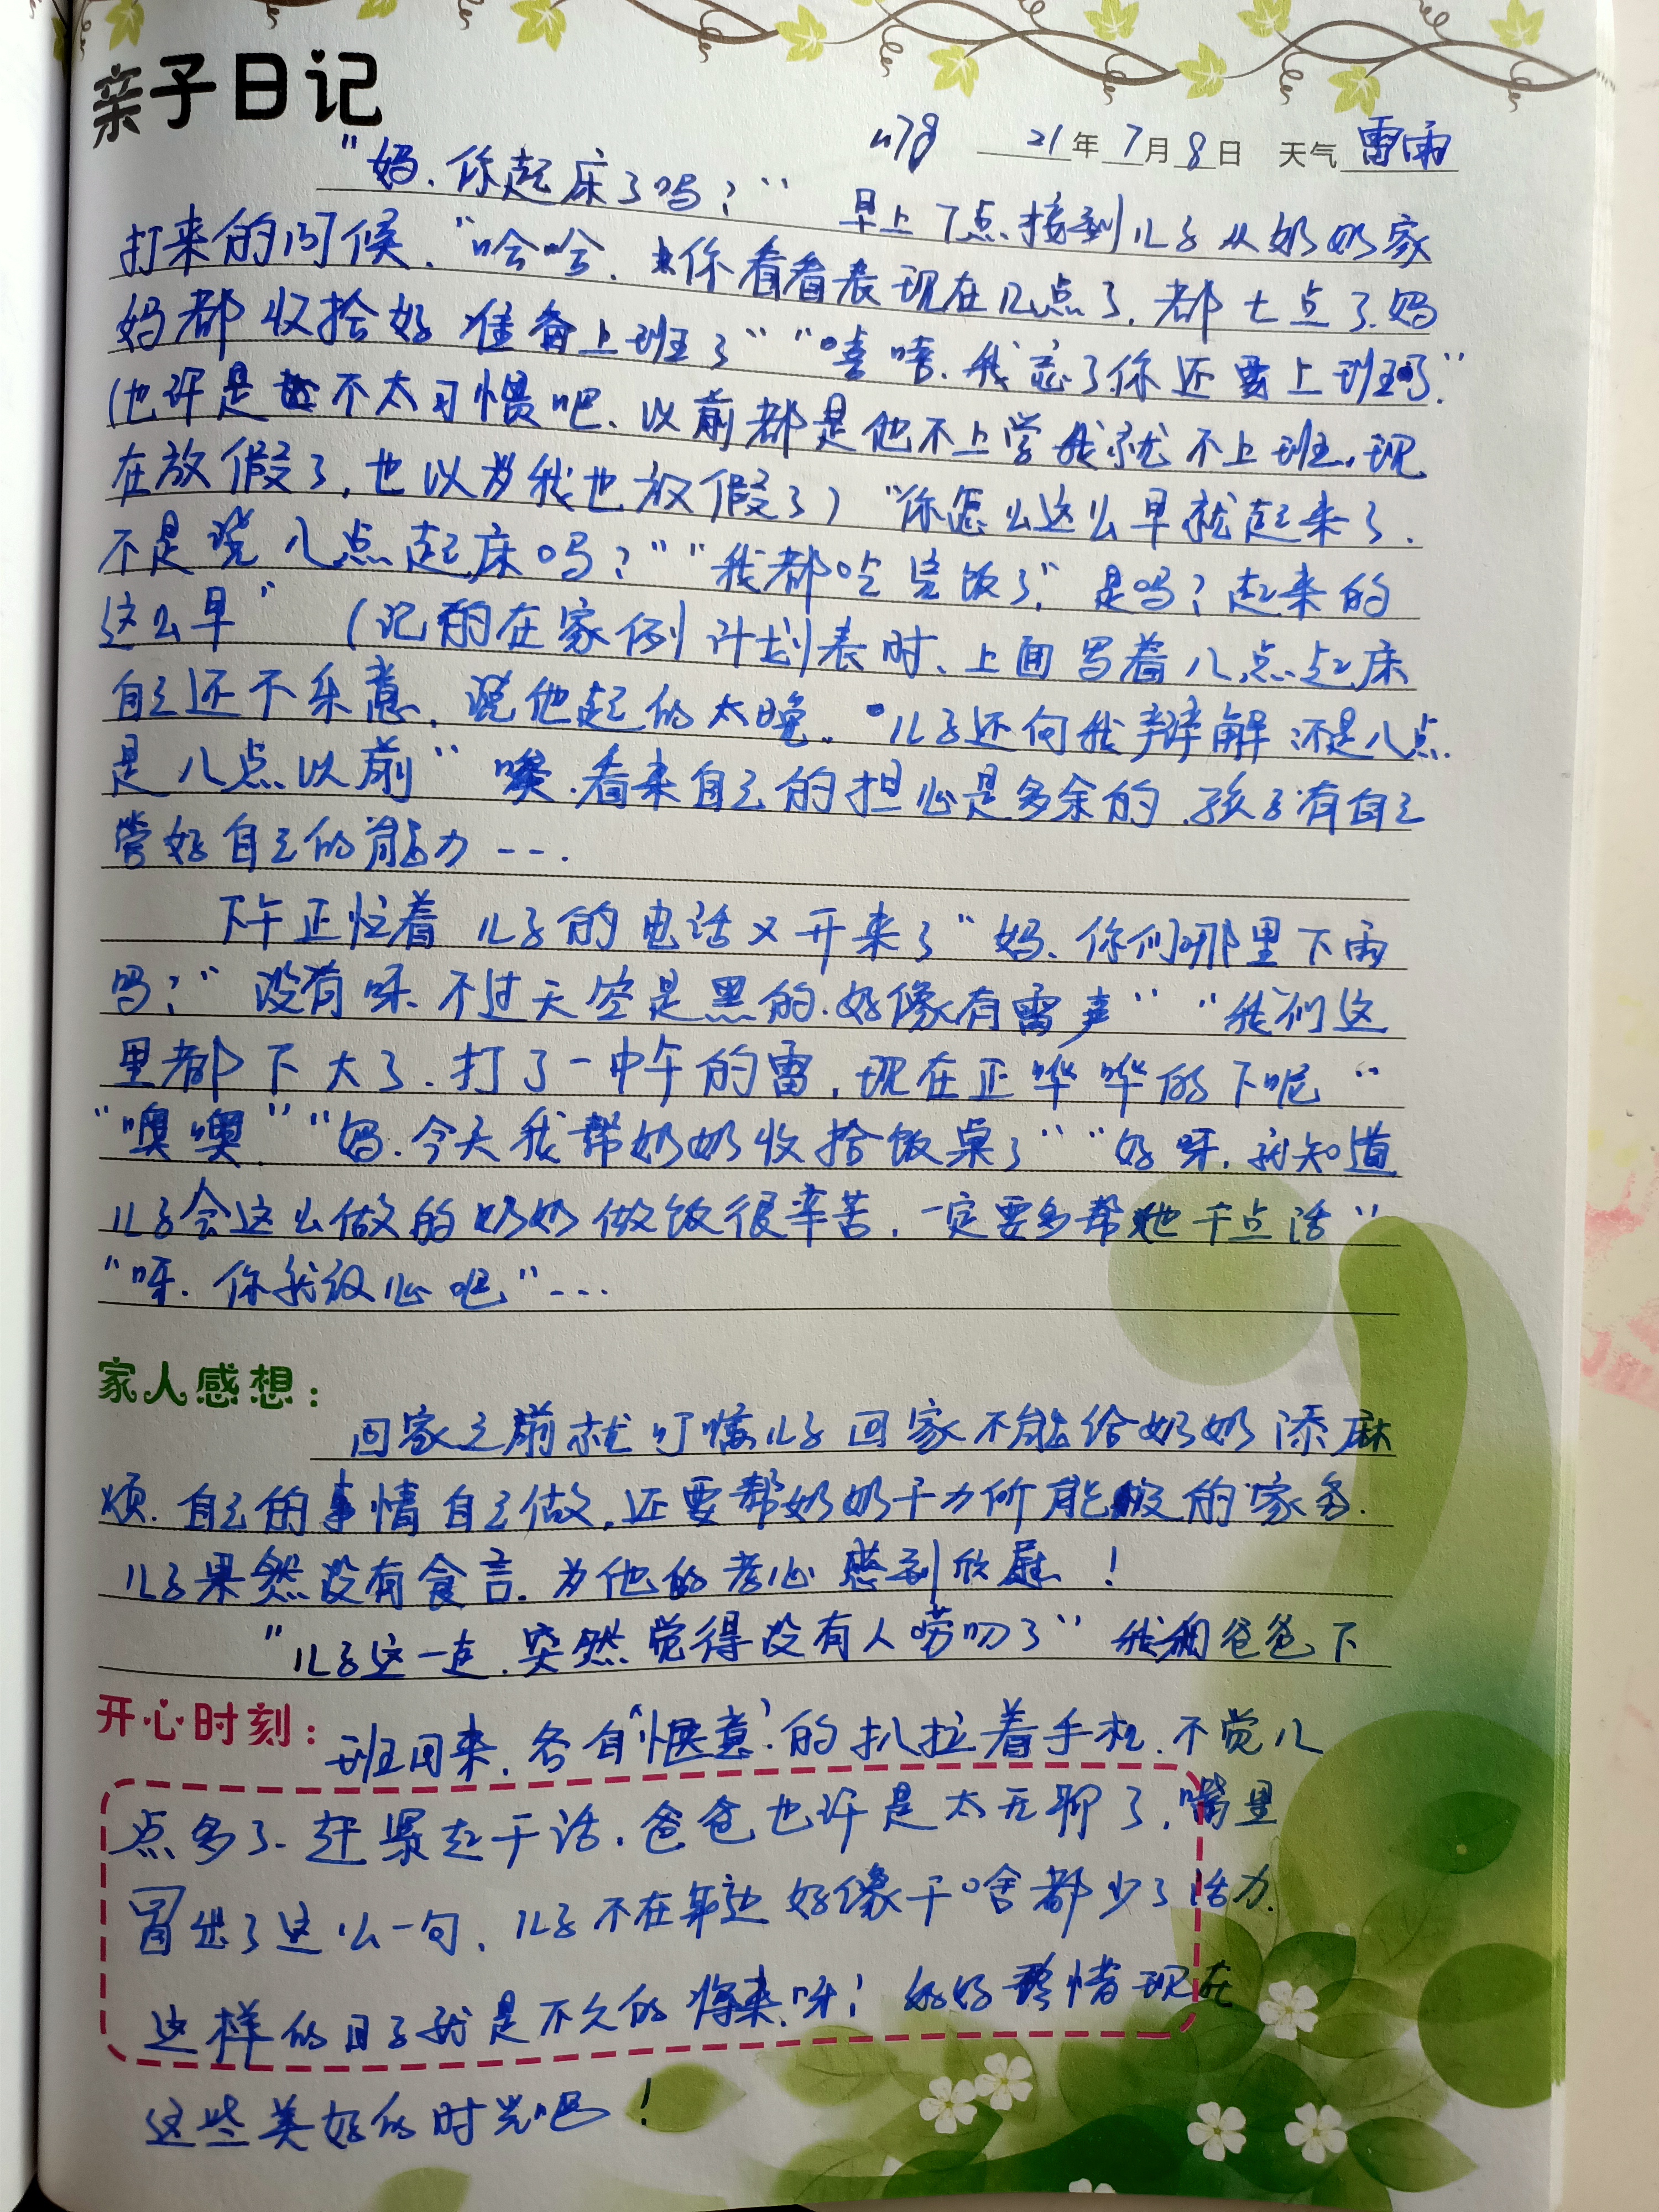 亲子日记
n78 21年7月8日 天气 雷雨
"妈、你起床了吗？" 早上7点接到儿子从奶奶家
打来的问候、"哈哈、你看看表现在几点了,都七点了.妈
妈都收拾好准备上班了" "嘻嘻、我忘了你还要上班了"
(也许是不太习惯吧、以前都是他不上学我就不上班,现
在放假了,也以为我也放假了) "你怎么这么早就起来了.
不是说八点起床吗?" "我都吃完饭了" 是吗?起来的
这么早" (记的在家例计划表时、上面写着八点起床
自己还不乐意、说他起的太晚。儿子还向我辩解不是八点
是八点以前" 唉.看来自己的担心是多余的.孩子有自己
管好自己的能力---.
下午正忙着 儿子的电话又开来了"妈、你们那里下雨
吗?" 没有呀、不过天空是黑的.好像有雷声" "我们这
里都下大了.打了一中午的雷,现在正哗哗的下呢"
"噢噢" "妈.今天我帮奶奶收拾饭桌了" "好呀,我知道
儿子会这么做的奶奶做饭很辛苦.一定要多帮她干点活"
"呀.你就放心吧"---
家人感想:
回家之前就叮嘱儿子回家不能给奶奶添麻
烦.自己的事情自己做,还要帮奶奶干力所能及的家务.
儿子果然没有食言.为他的孝心感到欣慰!
"儿子这一走.突然觉得没有人唠叨了" 我和爸爸下
开心时刻:
班回来.各自'惬意'的扒拉着手机.不觉八
点多了.赶紧起干活.爸爸也许是太无聊了,嘴里
冒出了这么一句、儿子不在身边好像干啥都少了活力.
这样的日子就是不久的将来呀!好好珍惜现在
这些美好的时光吧!